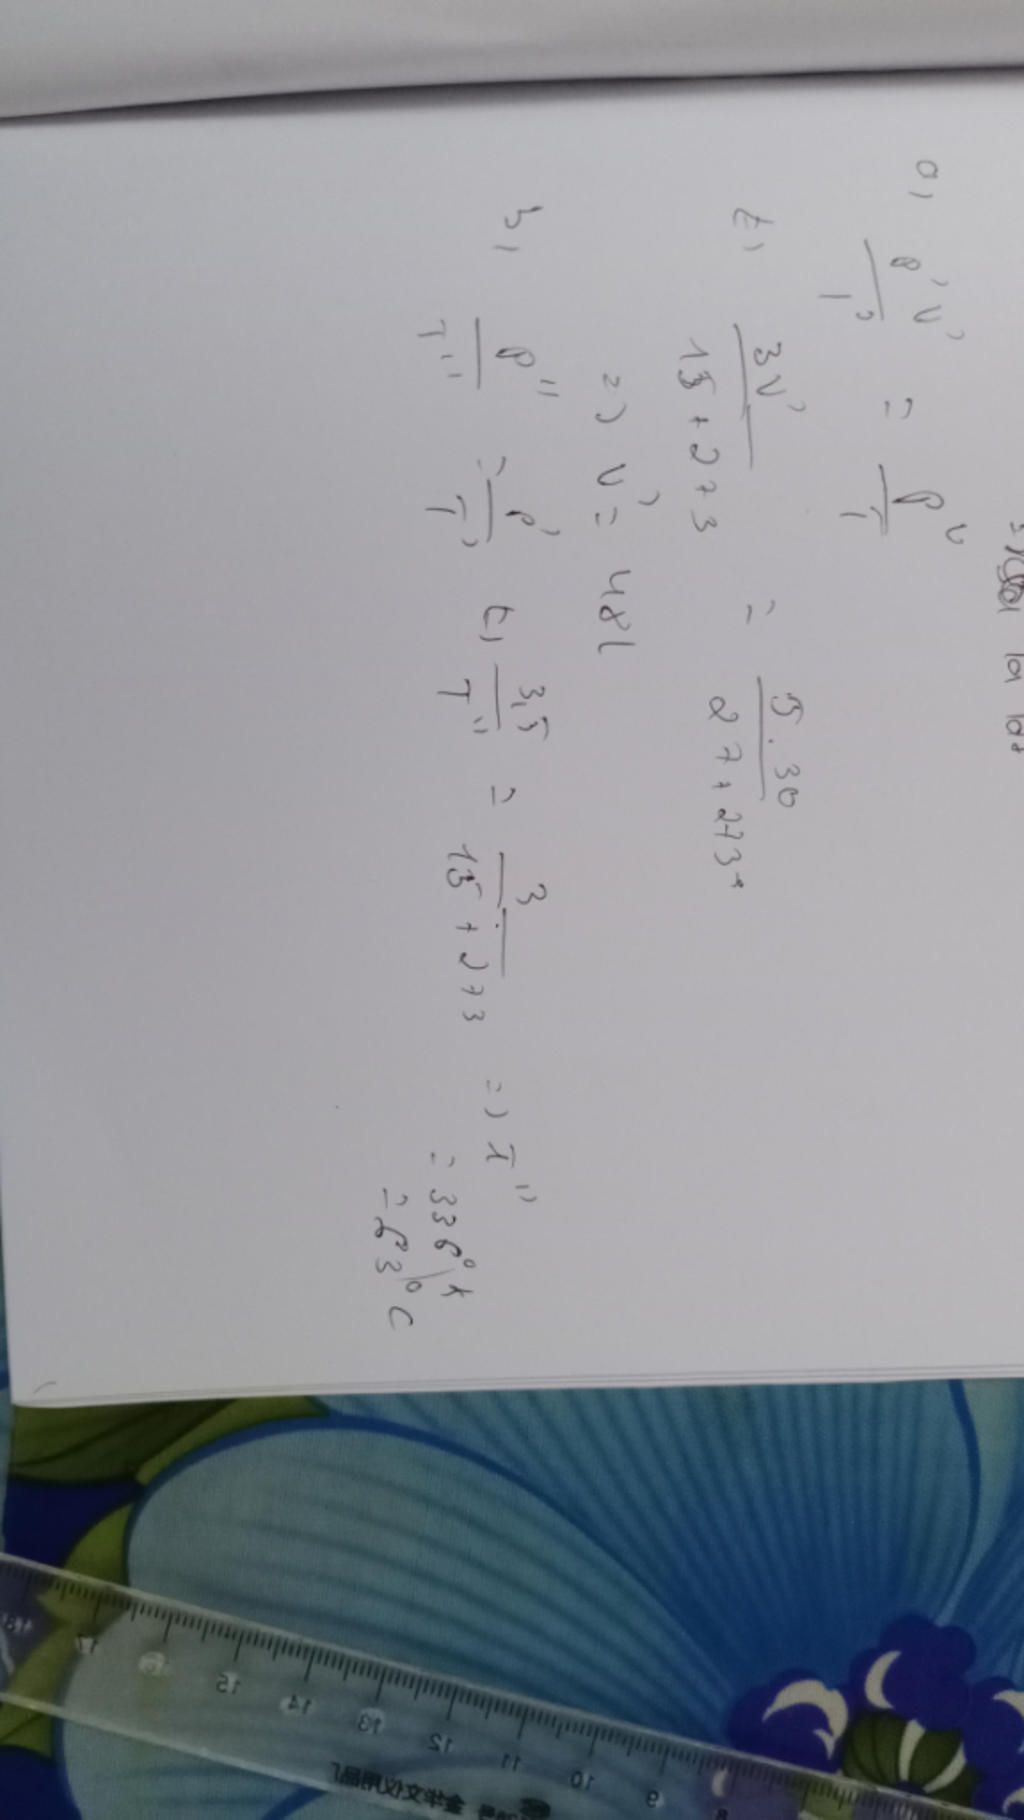 a, P'V' / T' = PV / T
(=) 3V' / 15 + 273 = 5.30 / 27 + 273
=) V' = 48l
b, P'' / T'' = P' / T' (=) 3,5 / T'' = 3 / 15 + 273 =) T''
= 336°K
= 63°C
17 16 15 14 13 12 11 10 9 8